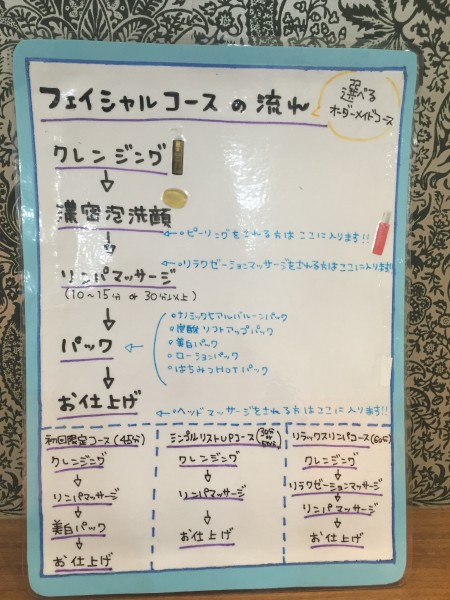 フェイシャルコースの流れ
選べる
オーダーメイドコース
クレンジング
↓
濃密泡洗顔
←○ピーリングをされる方はここに入ります!!
↓
←○リラクゼーションマッサージをされる方はここに入ります!!
リンパマッサージ
(10~15分 or 30分以上)
↓
パック
←
○ナノミックヒアルバルーンパック
○炭酸リフトアップパック
○美白パック
○ローションパック
○はちみつHOTパック
↓
お仕上げ
←○ヘッドマッサージをされる方はここに入ります!!
初回限定コース(45分)
クレンジング
↓
リンパマッサージ
↓
美白パック
↓
お仕上げ
テンプルリストUPコース
クレンジング
↓
リンパマッサージ
↓
お仕上げ
リラックスリンパコース(60分)
クレンジング
↓
リラクゼーションマッサージ
↓
リンパマッサージ
↓
お仕上げ